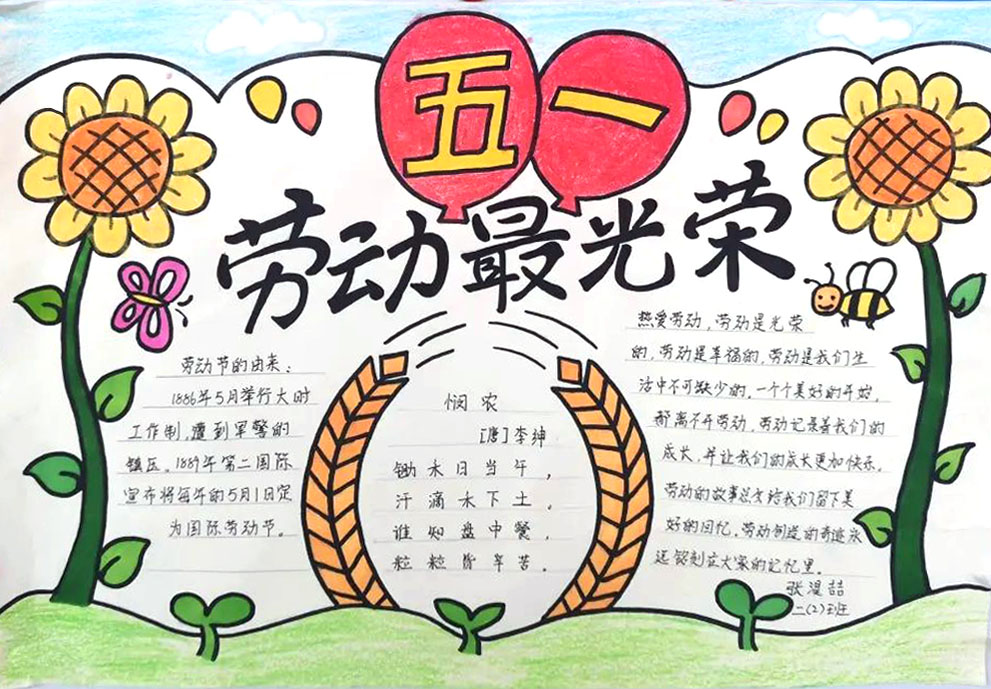 五一
劳动最光荣
劳动节的由来:
1886年5月举行大时
工作制,遭到军警的
镇压。1889年第二国际
宣布将每年的5月1日定
为国际劳动节。
悯农
[唐]李绅
锄禾日当午,
汗滴禾下土。
谁知盘中餐,
粒粒皆辛苦。
热爱劳动,劳动是光荣
的,劳动是幸福的,劳动是我们生
活中不可缺少的,一个个美好的开始,
都离不开劳动,劳动记录着我们的
成长,并让我们的成长更加快乐。
劳动的故事总为我们留下美
好的回忆,劳动创造的奇迹永
远铭刻在大家的记忆里。
张湜喆
二(2)班